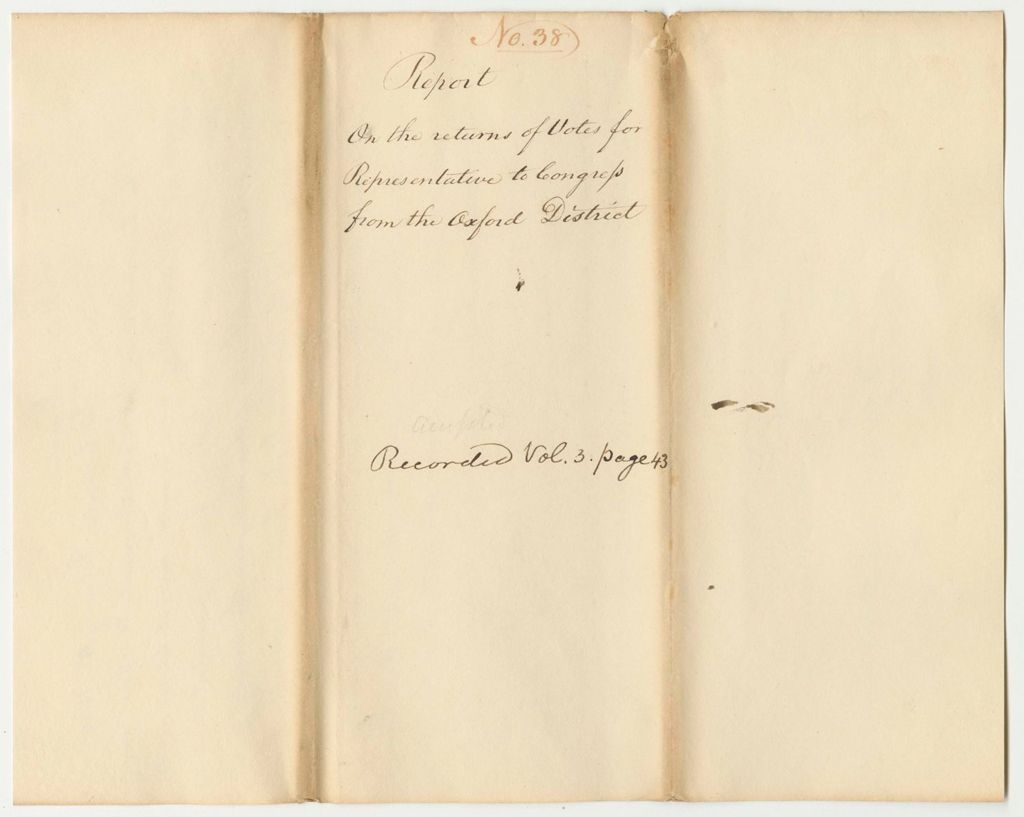 No. 38
Report
On the returns of Votes for
Representative to Congreſs
from the Oxford District
Recorded Vol. 3. page 43